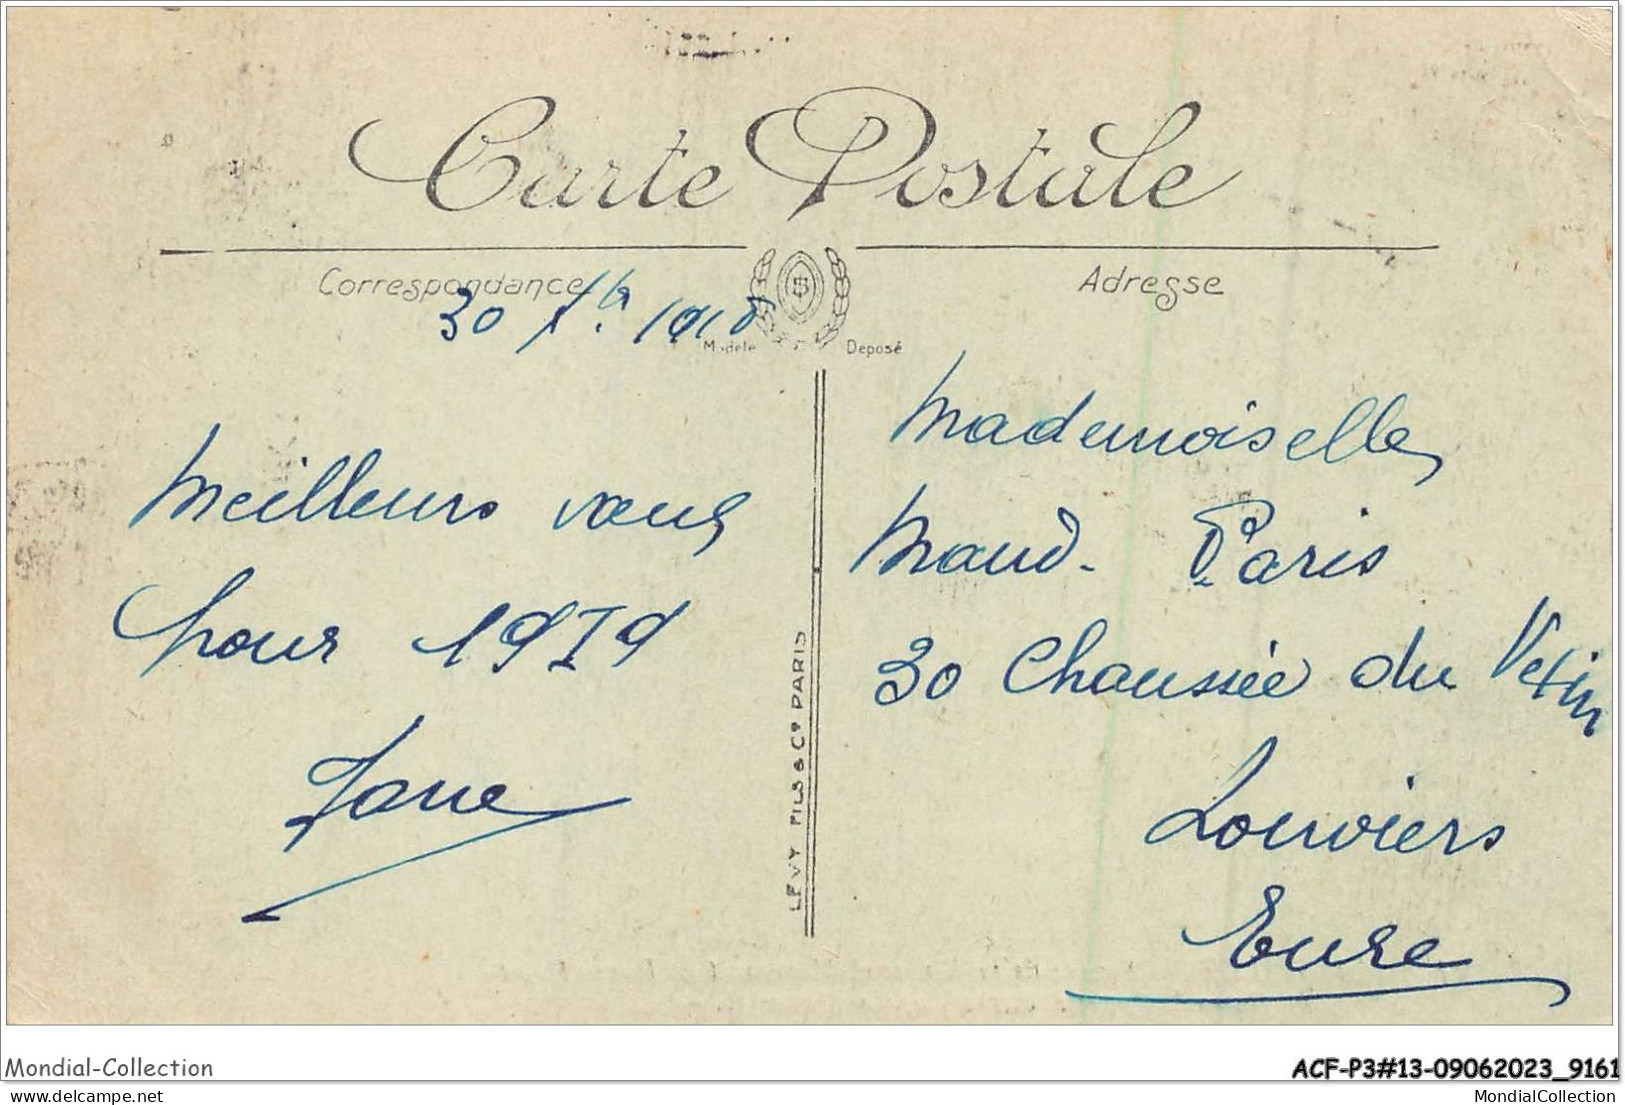 Carte Postale
Correspondance
Adresse
30 Xbre 1918
Modèle Déposé
Meilleurs vœux
pour 1919
Jane
LÉVY FILS & Cie PARIS
Mademoiselle
Maud. Paris
30 Chaussée du Vexin
Louviers
Eure
Mondial-Collection
ACF-P3#13-09062023_9161
MondialCollection
MondialCollection